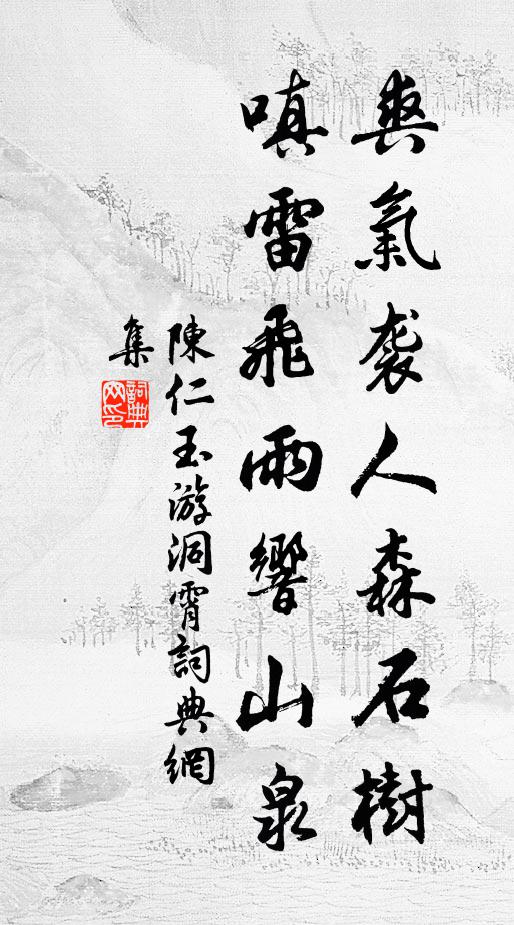 爽氣袭人森石樹
嗔雷飛雨響山泉
陳仁玉游洞霄詞典網
集
詞典网印